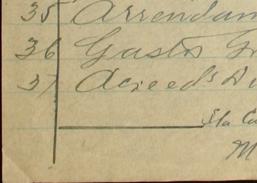 35 Arrendam
36 Gastos G
37 Acreeds Di
M